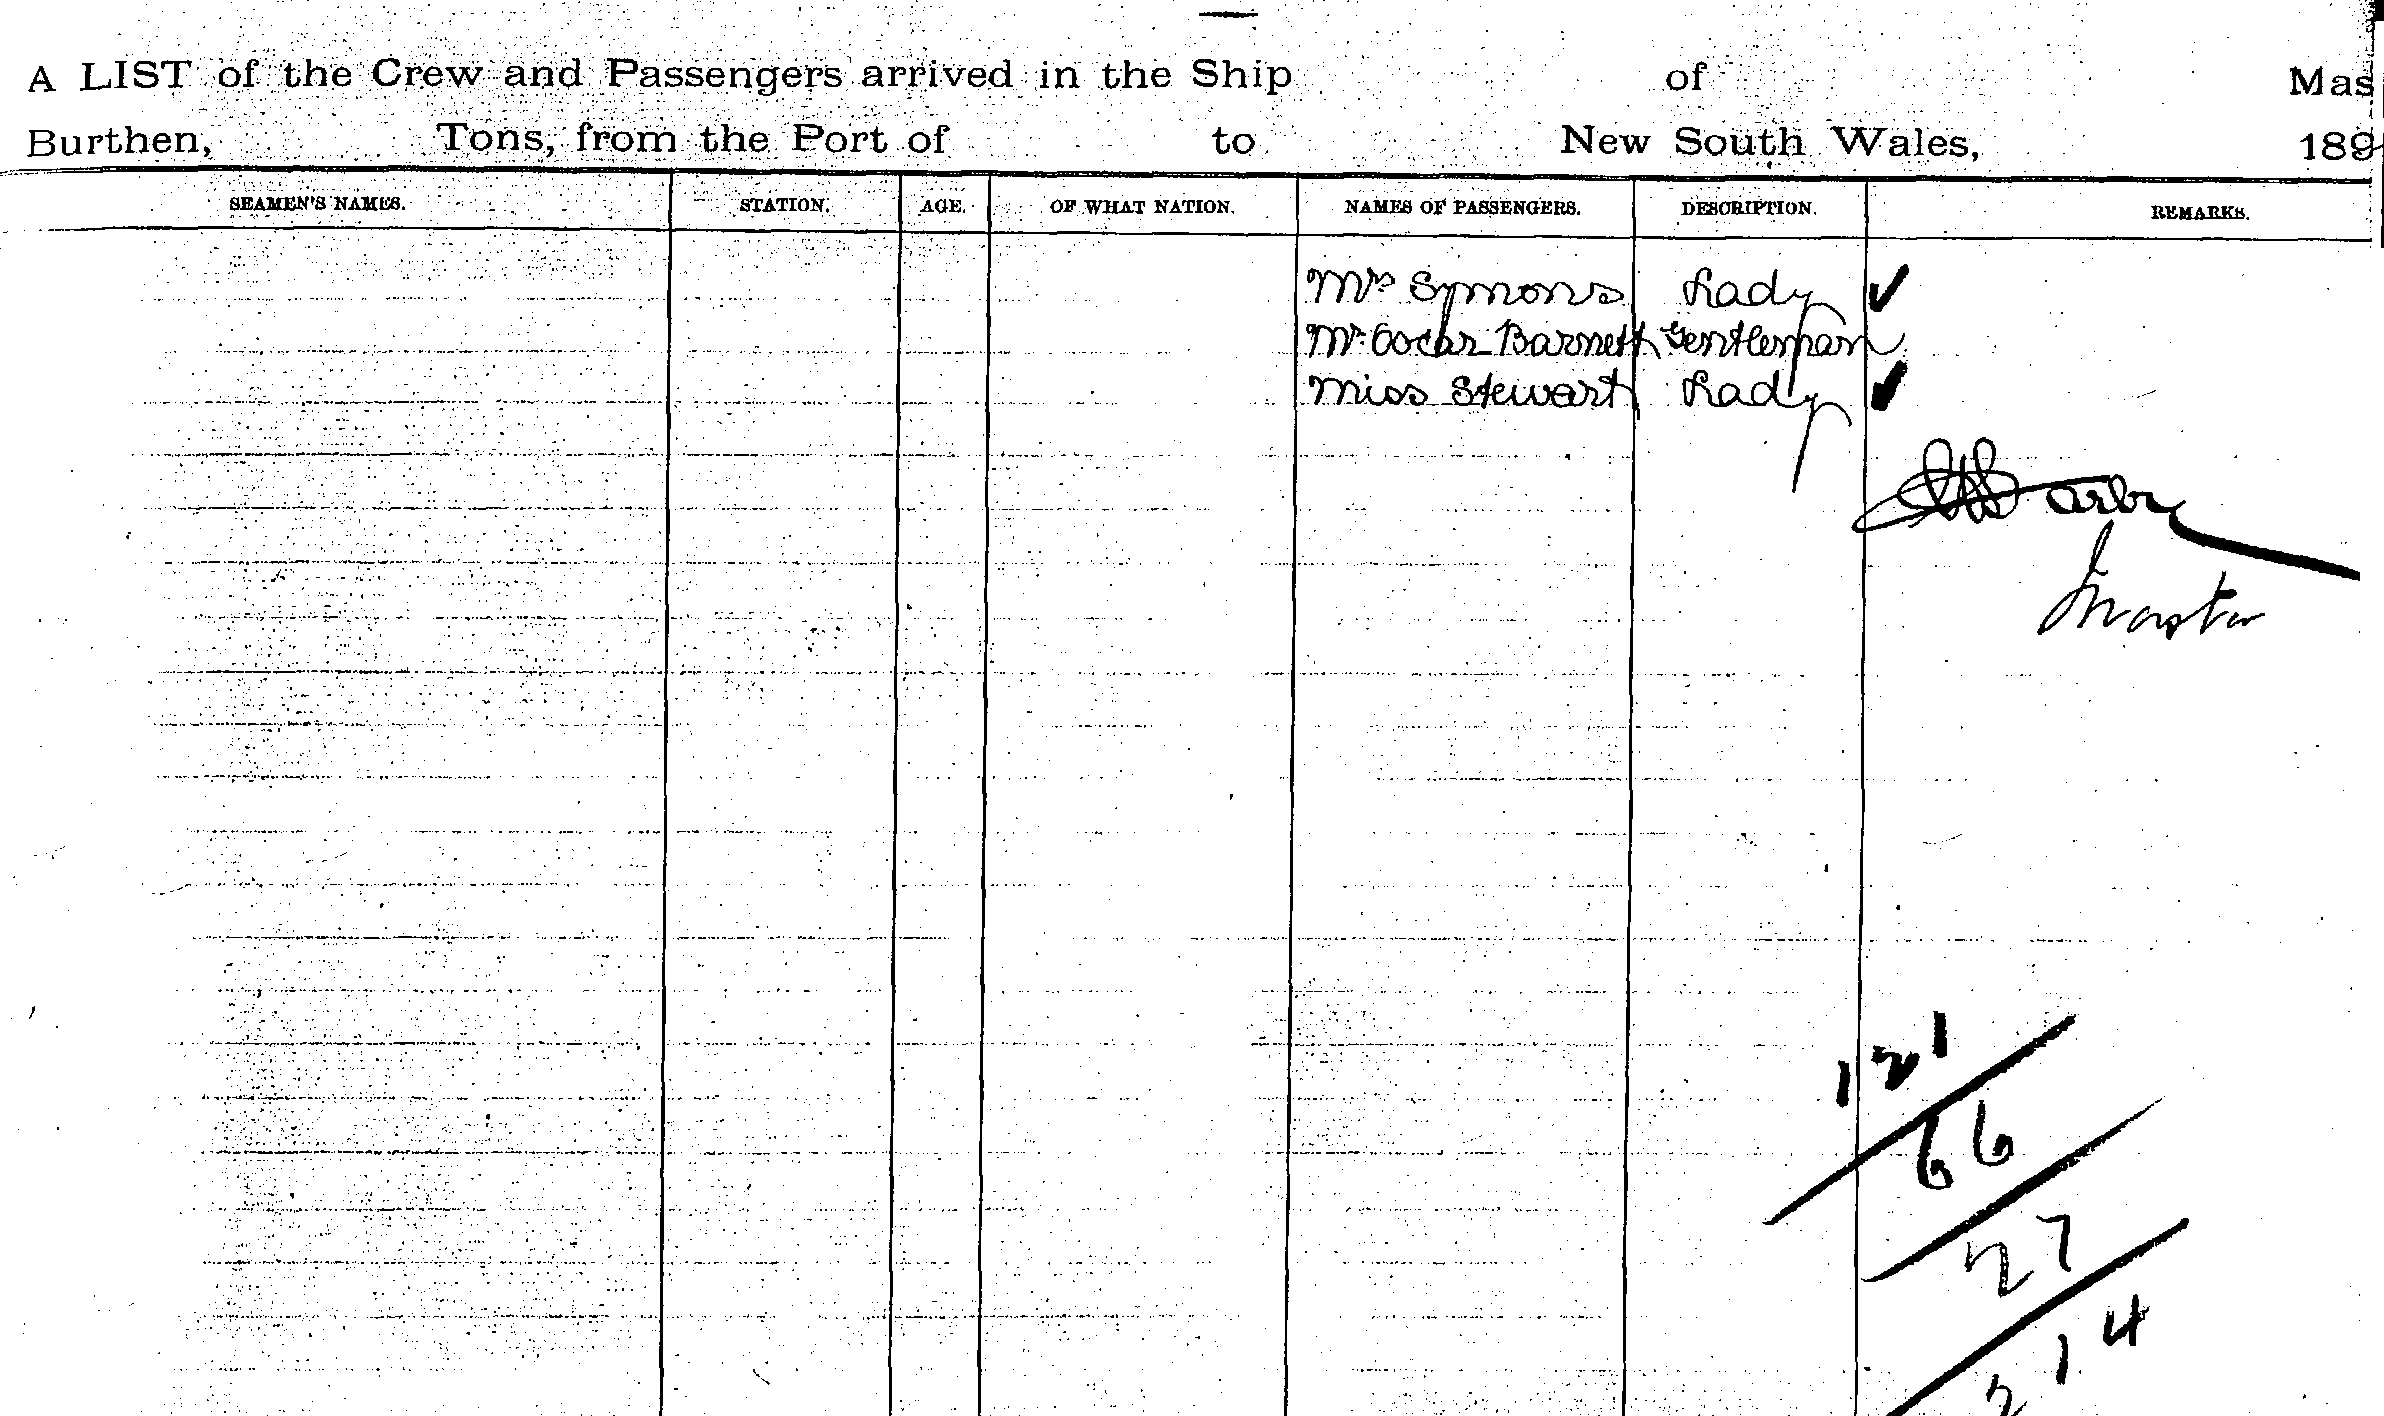 A LIST of the Crew and Passengers arrived in the Ship of Mas
Burthen, Tons, from the Port of to New South Wales, 189
SEAMEN'S NAMES. STATION. AGE. OF WHAT NATION. NAMES OF PASSENGERS. DESCRIPTION. REMARKS.
Mrs Symons Lady ✓
Mr. Oscar Barnett Gentleman
Miss Stewart Lady ✓
Master
121
66
27
214